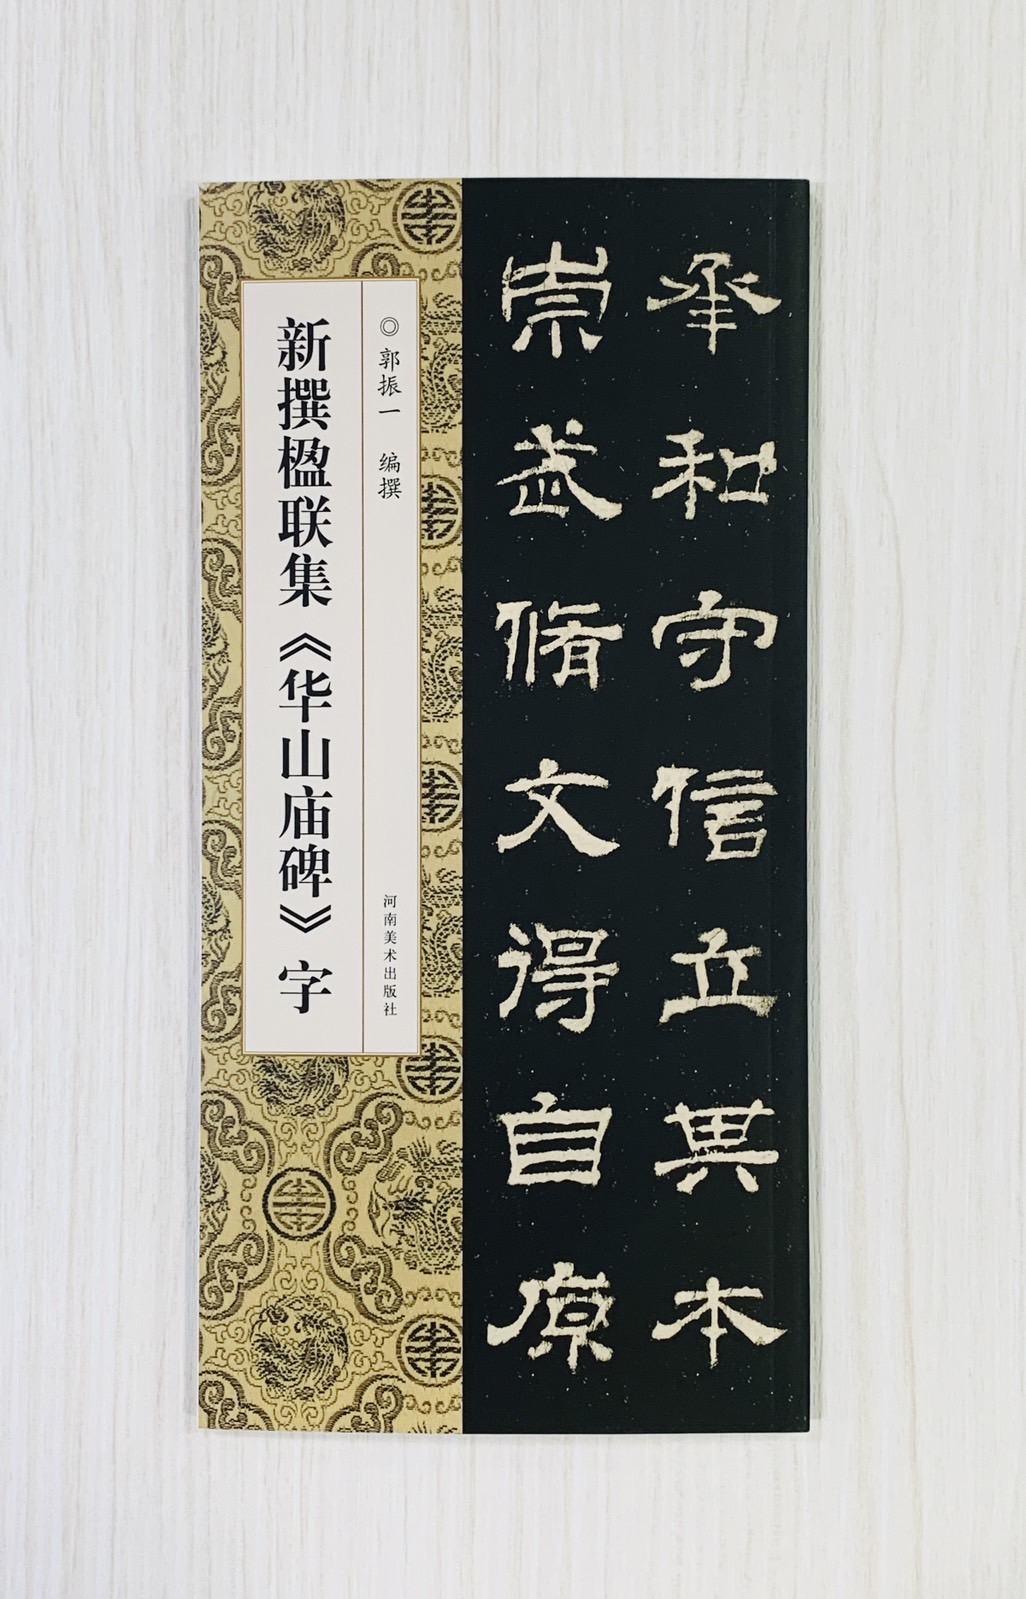 承和守信立其本
崇武脩文得自原
◎郭振一 编撰
河南美术出版社
新撰楹联集《华山庙碑》字